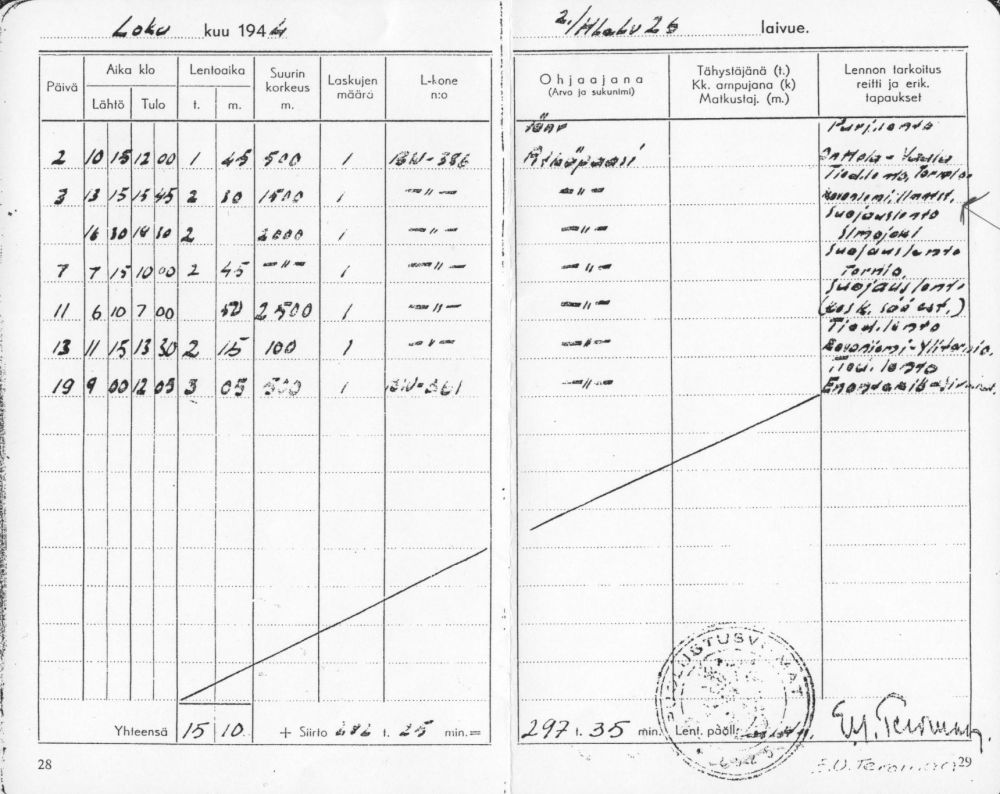 Loka kuu 1944
Päivä Aika klo Lähtö Tulo Lentoaika t. m. Suurin korkeus m. Laskujen määrä L-kone n:o
2 10 15 12 00 1 45 500 1 BW-386
3 13 15 15 45 2 30 1500 1 —〃—
16 30 18 30 2 2000 1 —〃—
7 7 15 10 00 2 45 —〃— 1 —〃—
11 6 10 7 00 50 2500 1 —〃—
13 11 15 13 30 2 15 100 1 —〃—
19 9 00 12 05 3 05 500 1 BW-361
Yhteensä 15 10 + Siirto t. 25 min.=
28
2./HLeLv 26 laivue.
Ohjaajana (Arvo ja sukunimi) Tähystäjänä (t.) Kk. ampujana (k) Matkustaj. (m.) Lennon tarkoitus reitti ja erik. tapaukset
Vänr
—〃— Tied.lento, Tornio-
—〃— Rovaniemi,
Suojauslento
—〃— Simojoki
Suojauslento
—〃— Tornio.
Suojauslento
—〃— (kesk. sää est.)
Tied.lento
—〃— Rovaniemi-Ylitornio.
Tied. lento
—〃—
297 t. 35 min. Lent. pääll:
PUOLUSTUSVOIMAT
E.U. Teromaa
29